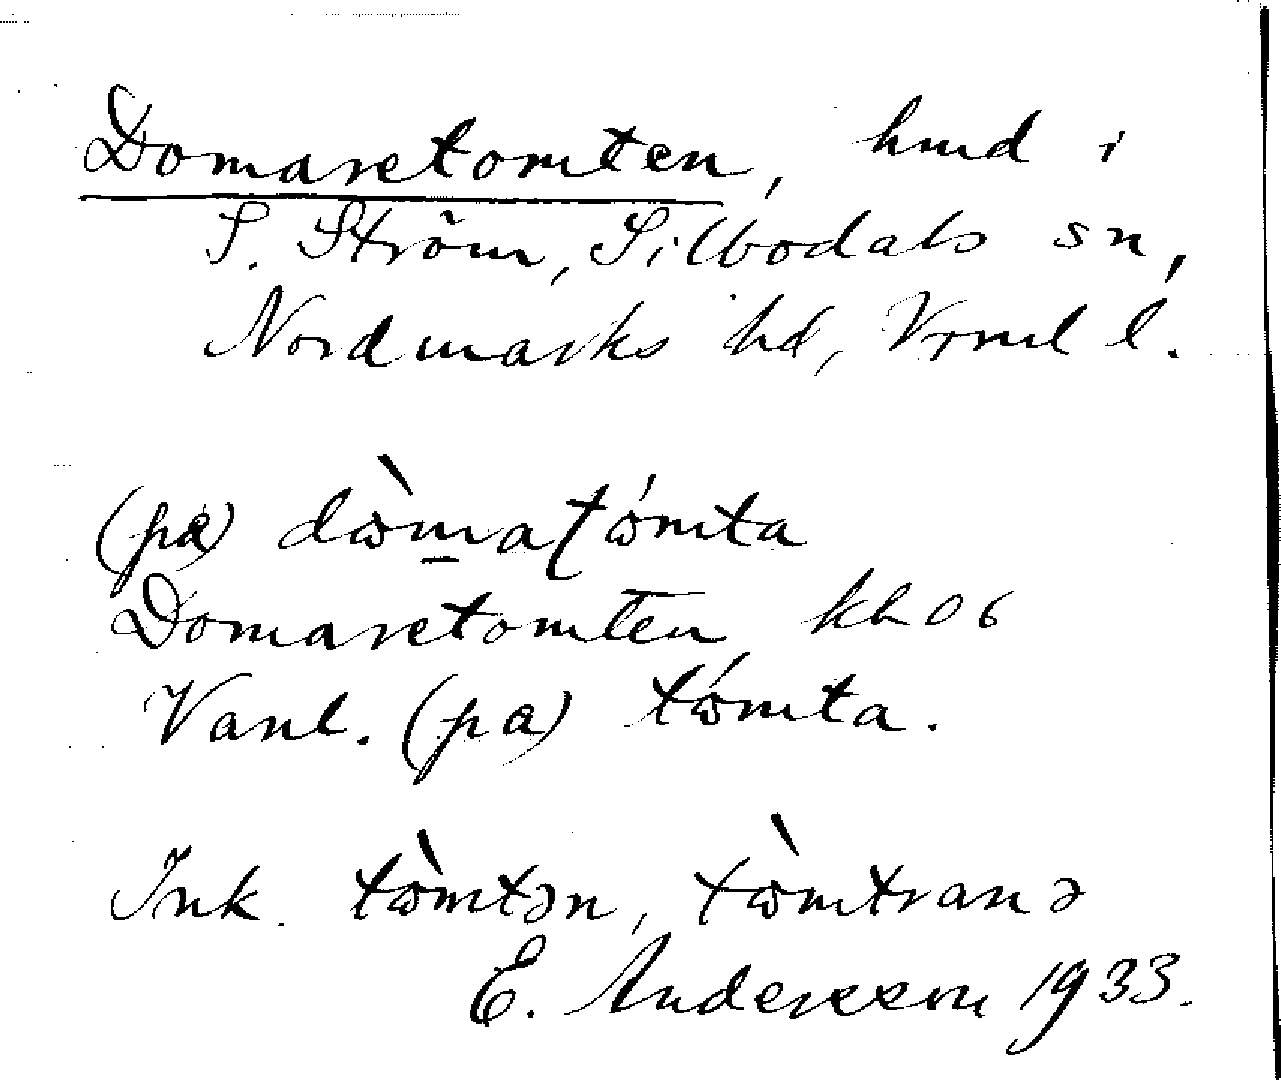 Domaretomten, hmd i
S. Ström, Silbodals sn,
Nordmarks hd, Vrml l.
(pa) dòmatómta
Domaretomten kh 06
Vanl. (pa) tómta.
Ink. tòmtən, tòmtranə
E. Andersson 1933.